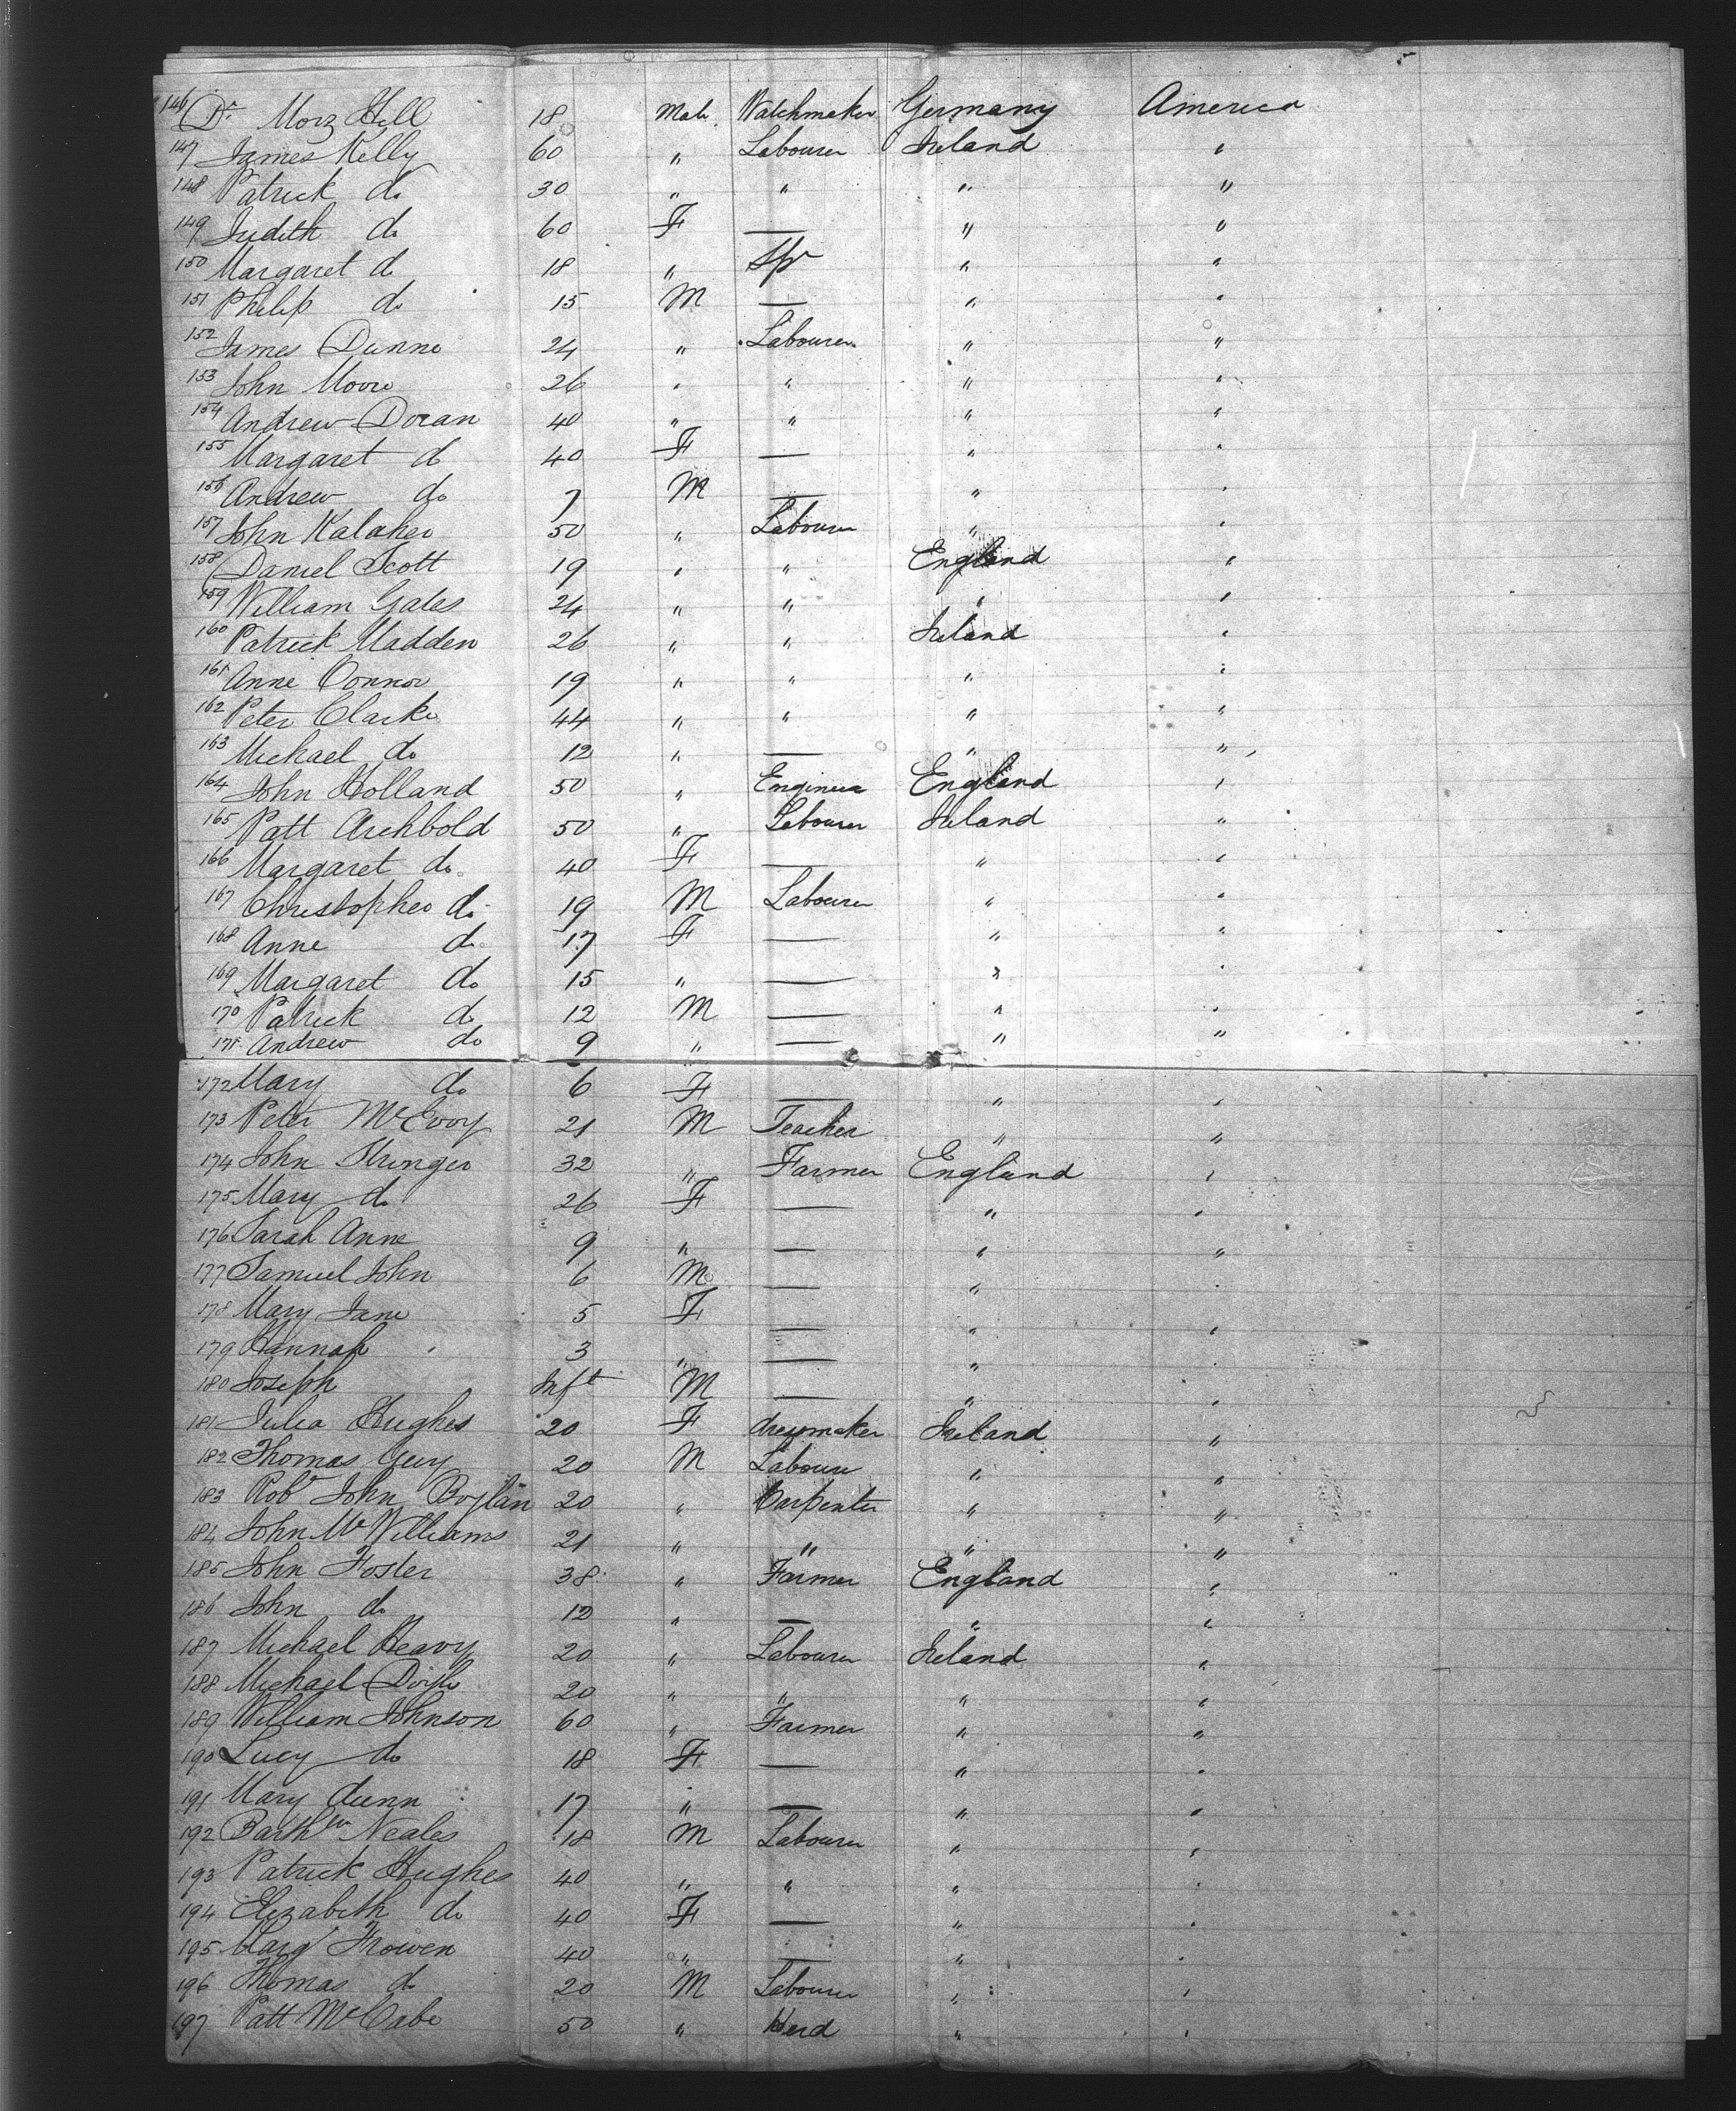 146 Dr Morz Hill 18 Male Watchmaker Germany America
147 James Kelly 60 " Labourer Ireland "
148 Patrick do 30 " " " "
149 Judith do 60 F — " "
150 Margaret do 18 " Spr " "
151 Philip do 15 M — " "
152 James Dunne 24 " Labourer " "
153 John Moore 26 " " " "
154 Andrew Doran 40 " " " "
155 Margaret do 40 F — " "
156 Andrew do 7 M — " "
157 John Kalaher 50 " Labourer " "
158 Daniel Scott 19 " " England "
159 William Gates 24 " " " "
160 Patrick Madden 26 " " Ireland "
161 Anne Connor 19 " " " "
162 Peter Clarke 44 " " " "
163 Michael do 12 " — " "
164 John Holland 50 " Engineer England "
165 Patt Archbold 50 " Labourer Ireland "
166 Margaret do 40 F — " "
167 Christopher do 19 M Labourer " "
168 Anne do 17 F — " "
169 Margaret do 15 " — " "
170 Patrick do 12 M — " "
171 Andrew do 9 " — " "
172 Mary do 6 F — " "
173 Peter McEvoy 21 M Teacher " "
174 John Stringer 32 " Farmer England "
175 Mary do 26 F — " "
176 Sarah Anne 9 " — " "
177 Samuel John 6 M — " "
178 Mary Jane 5 F — " "
179 Hannah 3 " — " "
180 Joseph Inft M — " "
181 Julia Hughes 20 F dressmaker Ireland "
182 Thomas Guy 20 M Labourer " "
183 Robt John Boylan 20 " Carpenter " "
184 John McWilliams 21 " " " "
185 John Foster 38 " Farmer England "
186 John do 12 " — " "
187 Michael Heavy 20 " Labourer Ireland "
188 Michael Doyle 20 " " " "
189 William Johnson 60 " Farmer " "
190 Lucy do 18 F — " "
191 Mary dunn 17 " — " "
192 Barthw Neales 18 M Labourer " "
193 Patrick Hughes 40 " " " "
194 Elizabeth do 40 F — " "
195 Margt Frowen 40 " — " "
196 Thomas do 20 M Labourer " "
197 Patt McCabe 50 " Herd " "